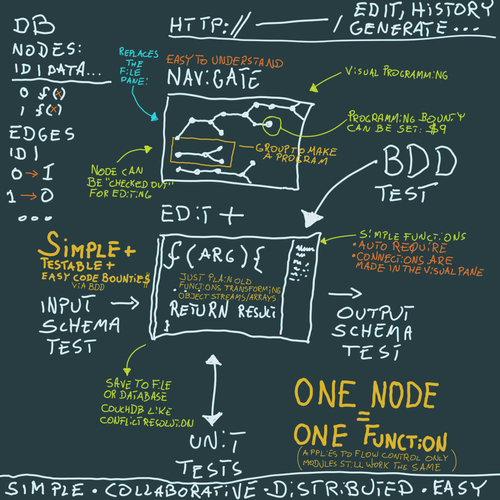 DB
NODES:
ID | DATA...
0 f(x)
1 f(x)
EDGES
ID |
0 → 1
1 → 0
...
HTTP://————/
EDIT, HISTORY
GENERATE...
REPLACES
THE
FILE
PANE!
EASY TO UNDERSTAND
NAVIGATE
VISUAL PROGRAMMING
PROGRAMMING BOUNTY
CAN BE SET: $9
GROUP TO MAKE
A PROGRAM
NODE CAN
BE "CHECKED OUT"
FOR EDITING
BDD
TEST
EDIT +
SIMPLE +
TESTABLE +
EASY CODE BOUNTIE$
VIA BDD
INPUT
SCHEMA
TEST
f(ARG){
JUST PLAIN OLD
FUNCTIONS TRANSFORMING
OBJECT STREAMS/ARRAYS
...
RETURN RESULT
}
SIMPLE FUNCTIONS
• AUTO REQUIRE
• CONNECTIONS ARE
MADE IN THE VISUAL PANE
OUTPUT
SCHEMA
TEST
SAVE TO FILE
OR DATABASE
COUCHDB LIKE
CONFLICT RESOLUTION
UNIT
TESTS
ONE NODE
=
ONE FUNCTION
(APPLIES TO FLOW CONTROL ONLY
MODULES STILL WORK THE SAME)
SIMPLE • COLLABORATIVE • DISTRIBUTED • EASY